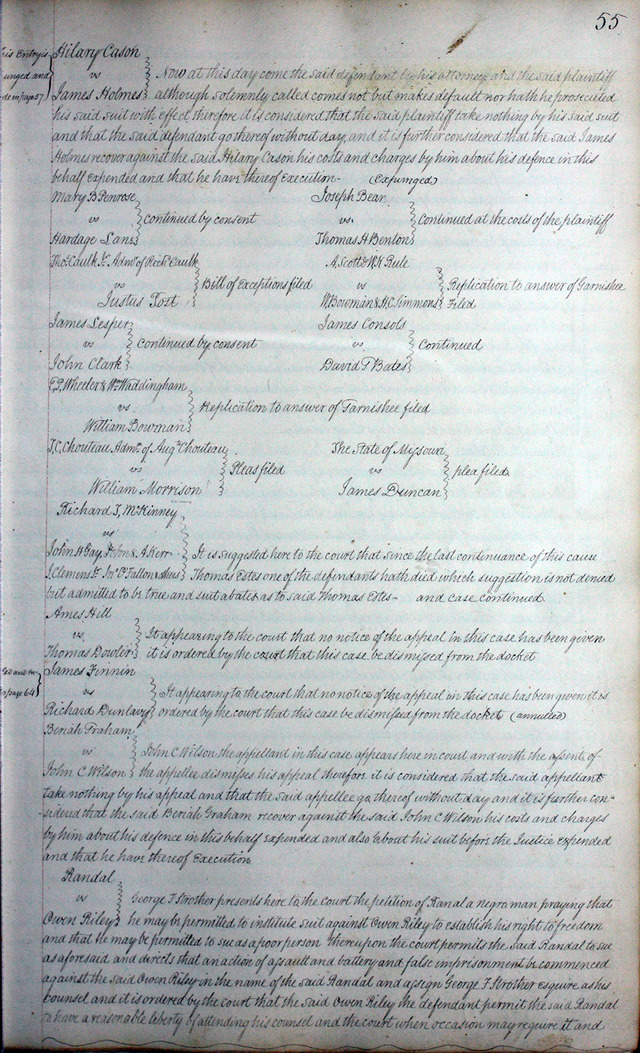 55
Hilary Cason
vs Now at this day come the said defendant by his attorney and the said plaintiff
James Holmes although solemnly called comes not but makes default nor hath he prosecuted
his said suit with effect therefore it is considered that the said plaintiff take nothing by his said suit
and that the said defendant go thereof without day, and it is further considered that the said James
Holmes recover against the said Hilary Cason his costs and charges by him about his defence in this
behalf expended and that he have thereof Execution- (Expunged)
Mary B Penrose
vs continued by consent
Hardage Lane
Joseph Bear
vs. Continued at the costs of the plaintiff
Thomas H Benton
Thos. Caulk Jr. Admr. of Caulk
vs Bill of Exceptions filed
Justus Post
A. Scott & W. K Rule
vs Replication to answer of Garnishee
W. Bowman & H.C. Simmons Filed
James Lesper
vs continued by consent
John Clark
James Consols
vs Continued
David T Bates
E. P. Wheeler & Wm Waddingham
vs. Replication to answer of Garnishee filed
William Bowman
J. C. Chouteau Admr. of Augt. Chouteau
vs Pleas filed
William Morrison
The State of Missouri
vs plea filed
James Duncan
Richard J, McKinney
vs
John H Gay, & A Kerr It is suggested here to the court that since the last continuance of this cause
J. Clemens Jr. Jno. O'Fallon & Thomas Estes one of the defendants hath died which suggestion is not denied
but admitted to be true and suit abates as to said Thomas Estes- and case continued
Ames Hill
vs, It appearing to the court that no notice of the appeal in this case has been given
Thomas Dowler it is ordered by the court that this case be dismissed from the docket
James Finnin
vs It appearing to the court that no notice of the appeal in this case has been given it is
Richard Dunlavy ordered by the court that this case be dismissed from the docket (annulled)
Beriah Graham
vs John C Wilson the appellant in this case appears here in court and with the assent of
John C Wilson the appellee dismisses his appeal therefore it is considered that the said appellant
take nothing by his appeal and that the said appellee go thereof without day and it is further con-
sidered that the said Beriah Graham recover against the said John C Wilson his costs and charges
by him about his defence in this behalf expended and also about his suit before the Justice expended
and that he have thereof Execution
Randal
vs George F Strother presents here to the court the petition of Ranal a negro man praying that
Owen Riley he may be permitted to institute suit against Owen Riley to establish his right to freedom
and that he may be permitted to sue as a poor person thereupon the court permits the Said Randal to sue
as aforesaid and directs that an action of assault and battery and false imprisonment be commenced
against the said Owen Riley in the name of the said Randal and assign George F Strother esquire as his
counsel and it is ordered by the court that the said Owen Riley the defendant permit the said Randal
to have a reasonable liberty of attending his counsel and the court when occasion may require it and